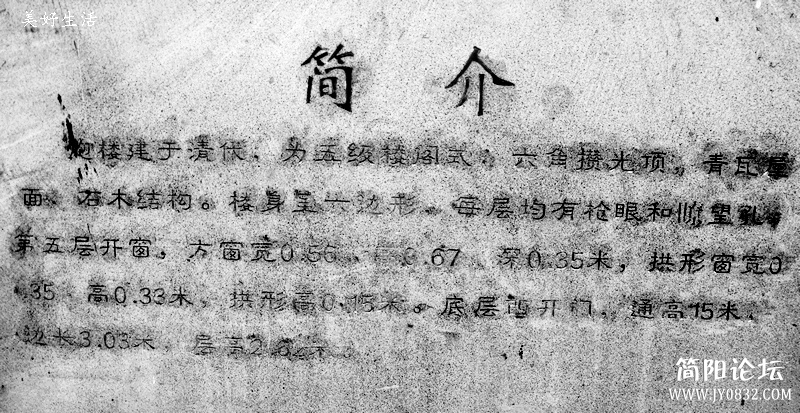 美好生活
简介
炮楼建于清代，为五级楼阁式，六角攒尖顶，青瓦屋
面，石木结构。楼身呈六边形。每层均有枪眼和瞭望孔，
第五层开窗，方窗宽0.56、高0.67、深0.35米，拱形窗宽0
.35、高0.33米，拱形高0.15米。底层西开门，通高15米，
边长3.03米，层高2.62米。
简阳论坛
www.JY0832.com